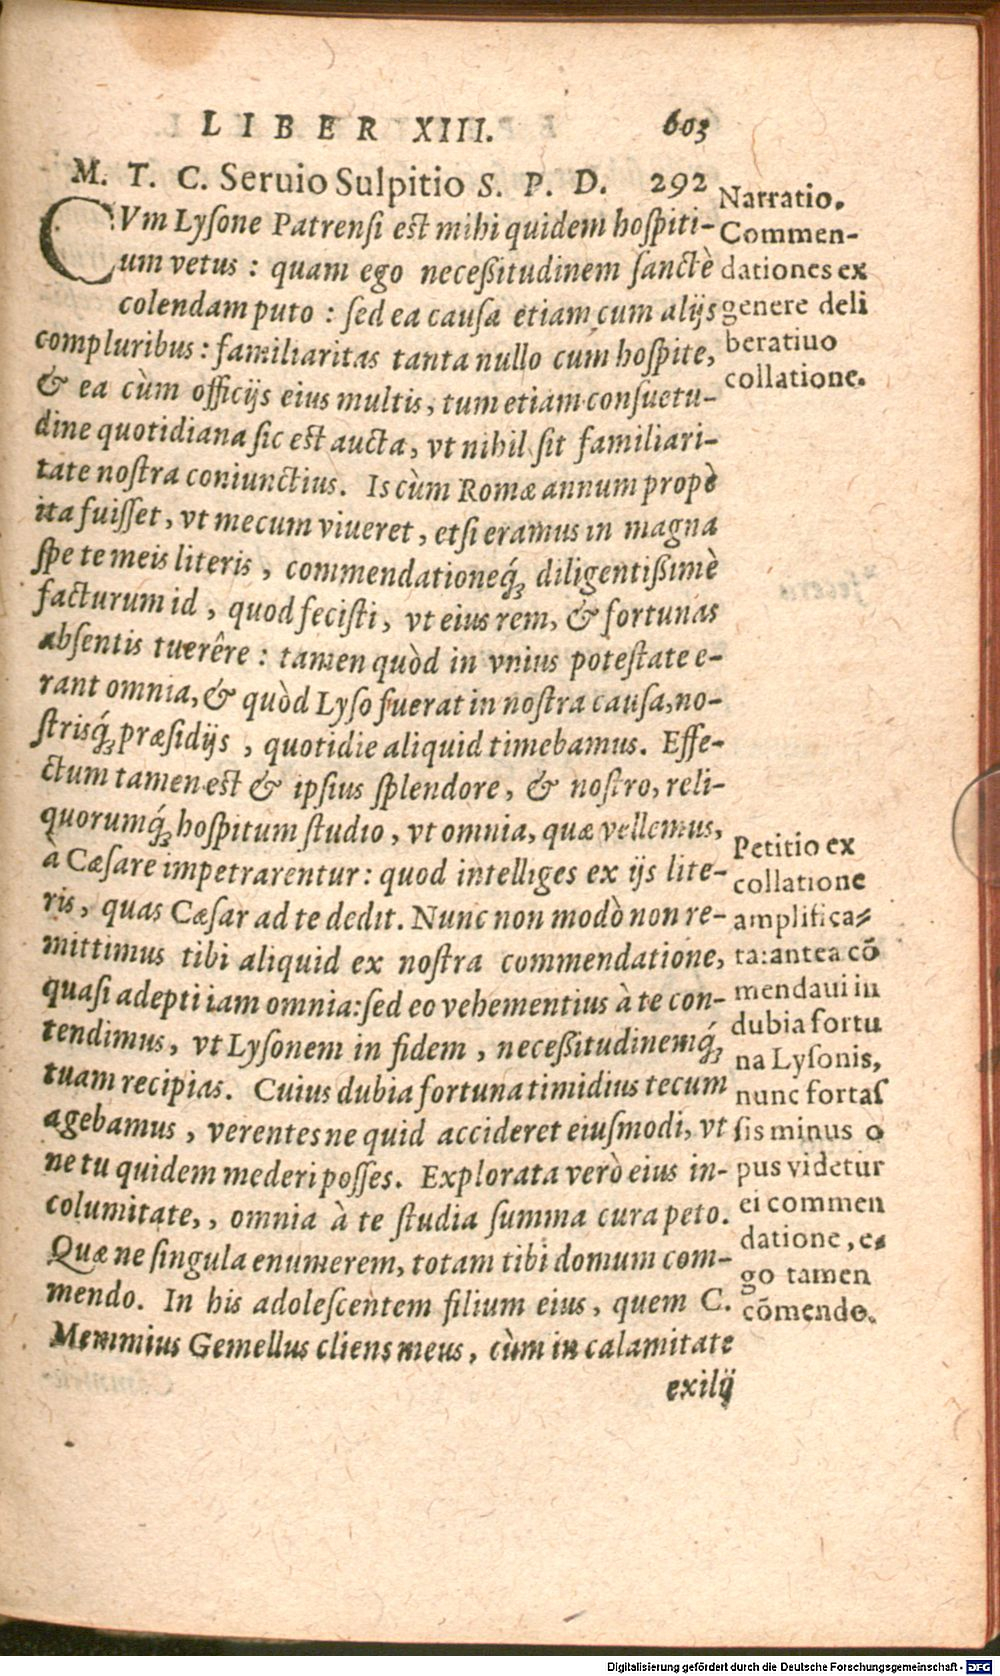 LIBER XIII. 603
M. T. C. Seruio Sulpitio S. P. D. 292
CVm Lysone Patrensi est mihi quidem hospiti-
um vetus : quam ego neceßitudinem sanctè
colendam puto : sed ea causa etiam cum alijs
compluribus : familiaritas tanta nullo cum hospite,
& ea cùm officijs eius multis, tum etiam consuetu-
dine quotidiana sic est aucta, vt nihil sit familiari-
tate nostra coniunctius. Is cùm Romæ annum propè
ita fuisset, vt mecum viueret, etsi eramus in magna
spe te meis literis, commendationeq́; diligentißimè
facturum id, quod fecisti, vt eius rem, & fortunas
absentis tuerêre : tamen quòd in vnius potestate e-
rant omnia, & quòd Lyso fuerat in nostra causa, no-
strisq́; præsidijs, quotidie aliquid timebamus. Effe-
ctum tamen est & ipsius splendore, & nostro, reli-
quorumq́; hospitum studio, vt omnia, quæ vellemus,
à Cæsare impetrarentur : quod intelliges ex ijs lite-
ris, quas Cæsar ad te dedit. Nunc non modò non re-
mittimus tibi aliquid ex nostra commendatione,
quasi adepti iam omnia: sed eo vehementius à te con-
tendimus, vt Lysonem in fidem, neceßitudinemq́;
tuam recipias. Cuius dubia fortuna timidius tecum
agebamus, verentes ne quid accideret eiusmodi, vt
ne tu quidem mederi posses. Explorata verò eius in-
columitate, , omnia à te studia summa cura peto.
Quæ ne singula enumerem, totam tibi domum com-
mendo. In his adolescentem filium eius, quem C.
Memmius Gemellus cliens meus, cùm in calamitate
exilij
Narratio.
Commen-
dationes ex
genere deli
beratiuo
collatione.
Petitio ex
collatione
amplifica-
ta: antea cō
mendaui in
dubia fortu
na Lysonis,
nunc fortas
sis minus o
pus videtur
ei commen
datione, e-
go tamen
cōmendo.
Digitalisierung gefördert durch die Deutsche Forschungsgemeinschaft - DFG